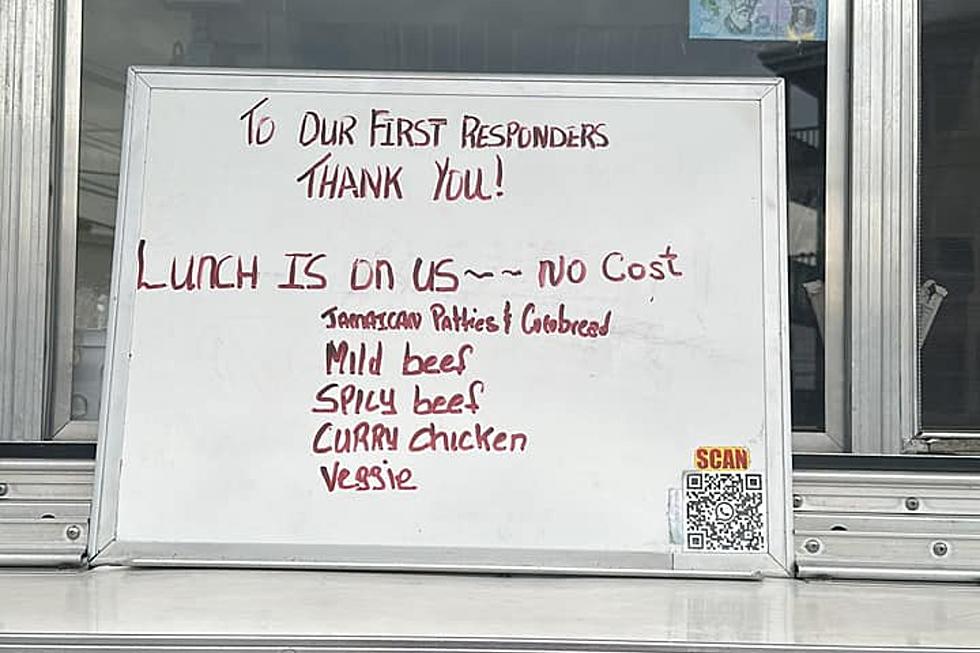 To OUR FIRST RESPONDERS
THANK YOU!
LUNCH IS on us ~~ NO Cost
JAMAICAN Patties & Cocobread
Mild beef
SPICY beef
CURRY chicken
Veggie
SCAN